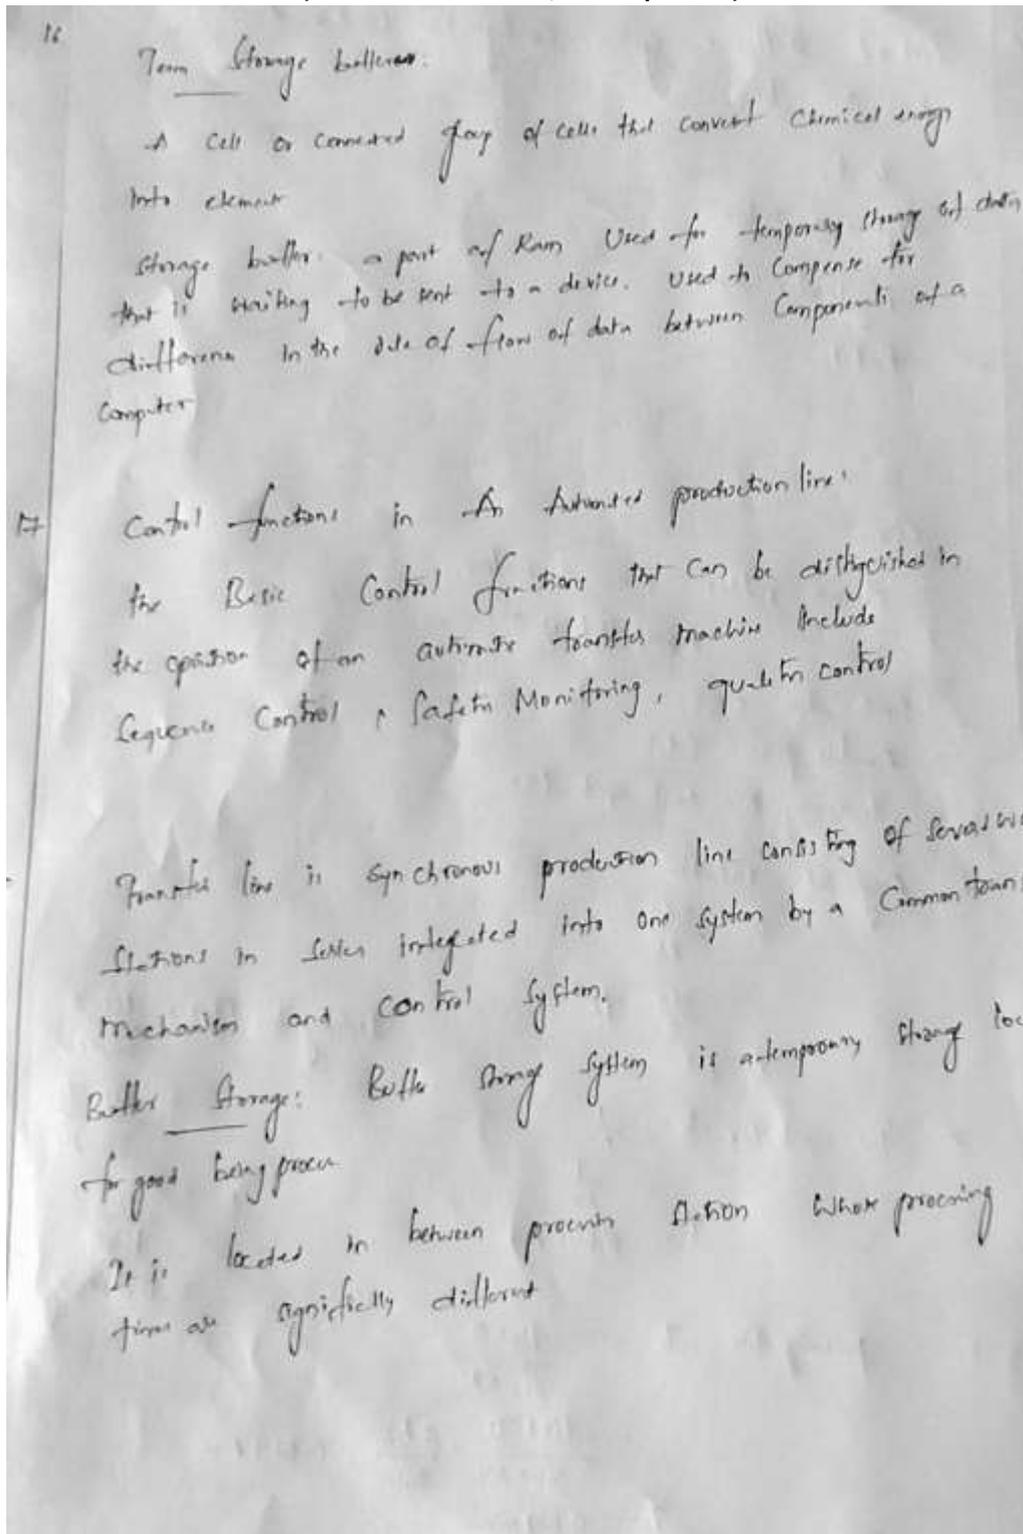 16
Term Storage
A Cell or connected group of cells that convert Chemical energy
into element
Storage buffer. a part of Ram Used for temporary storage of data
that is waiting to be sent to a device. Used to Compense for
difference In the rate of flow of data between Components of a
Computer
17 Control functions in An Automated production line.
the Basic Control functions that can be distinguished in
the opration of an automate transfer machine Include
Sequence Control, Safety Monitoring, quality control
Transfer line is Synchronous production line consisting of Several
Stations in series integrated into one system by a Common
mechanism and control system.
Buffer Storage: Buffer storage system is a temprorary storage
for good being proces
It is located in between station whose procesing
times are signifielly different